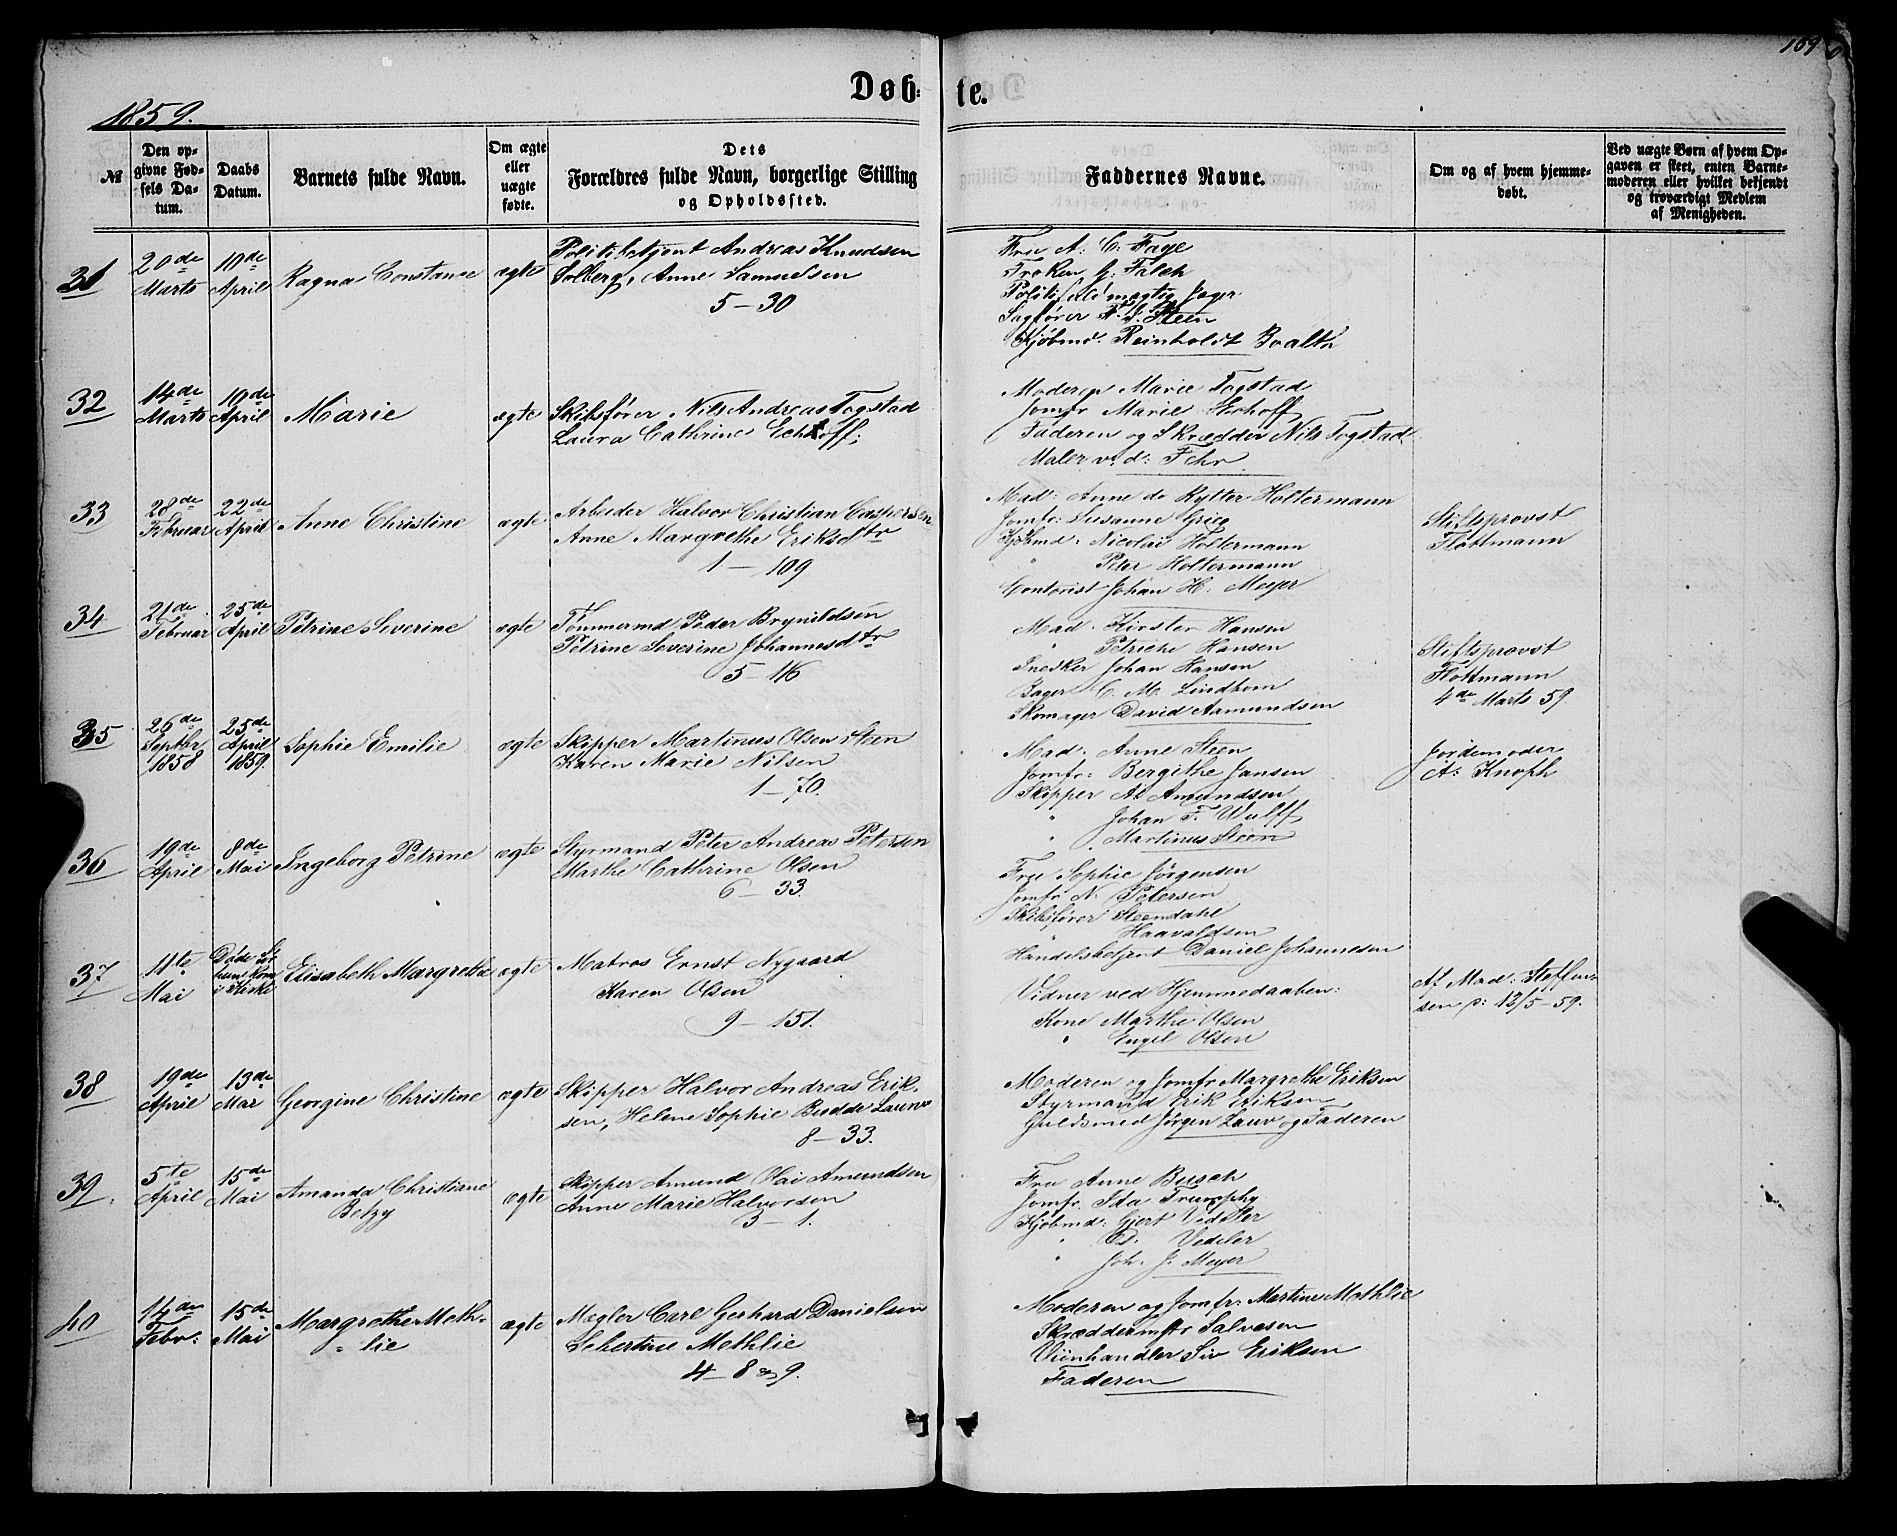 169
Døb- te.
1859.
№
Den opgivne Fødsels Datum.
Daabs Datum.
Barnets fulde Navn.
Om ægte eller uægte fødte.
Dets Forældres fulde Navn, borgerlige Stilling og Opholdssted.
Faddernes Navne.
Om og af hvem hjemmedøbt.
Ved uægte Børn af hvem Opgaven er skeet, enten Barnemoderen eller hvilket bekjendt og troværdigt Medlem af Menigheden.
31 20de Marts 19de April Ragna Constanse ægte
Politibetjent Andreas Knudsen
Solberg, Anne Samuelsen
5-30
Fru A. C. Faye
Frøken G. Falch
Politifuldmægtig Jager
Sagfører F. G. Steen
Kjøbmd. Reinholdt
32 14de Marts 19de April Marie ægte
Skibsfører Nils Andreas Togstad
Laura Cathrine Eckhoff;
Moderen Marie Togstad
Jomfr Marie Eckhoff
Faderen og Skrædder Nils Togstad
Maler v. d: Fehr
33 28de Februar 22de April Anne Christine ægte
Arbeider Halvor Christian Caspersen
Anne Margrethe Eriksdtr
1 - 109
Mad: Anne de Rytter Holtermann
Jomfr: Susanne Grieg
Kjøbmd: Nicolai Holtermann
" Peter Holtermann
Contorist Johan H. Meyer
Stiftsprovst
Flottmann
34 21de Februar 25de April Petrine Severine ægte
Tømmermd Peder Brynildsen
Petrine Severine Johannesdtr
5-116
Mad. Kirsten Hansen
" Petriche Hansen
Snedker Johan Hansen
Bager C. M. Lindhom
Skomager David Aamundsen
Stiftsprovst
Flottmann
4de Marts 59
35 26de Septbr 1858 25de April 1859. Sophie Emilie ægte
Skipper Martinus Olsen Steen
Karen Marie Nilsen
1-70.
Mad. Anne Steen
Jomfr: Bergithe Jansen
Skipper Al Amundsen
" Johan F. Wulff
" Martinus Steen
Jordemoder
A: Knoph
36 19de April 8de Mai Ingeborg Petrine ægte
Styrmand Peter Andreas Petersen
Marthe Cathrine Olsen
6-33.
Fru Sophie Jørgensen
Jomfr N. Petersen
Skibsfører Steendahl
" Haavaldsen
Handelsbetjent Daniel Johannesen
37 11te Mai Døde kom i Kirke Elisabeth Margrethe ægte
Matros Ernst Nygaard
Karen Olsen
9-151.
Vidner ved Hjemmedaaben:
Kone Marthe Olsen
" Engel Olsen
Af Mad: Steffensen
d: 12/5-59.
38 19de April 13de Mai Georgine Christine ægte
Skipper Halvor Andreas Eriksen,
Helene Sophie Budde Lauw
8-33.
Moderen og Jomfr Margrethe Eriksen
Styrmand Erik Eriksen
Guldsmed Jørgen Lauw og Faderen
39. 5te April 15de Mai Amanda Christiane Betzy ægte
Skipper Amund Olai Amundsen
Anne Marie Halvorsen
3-1.
Fru Anne Busch
Jomfr. Ida Trumphy
Kjøbmd: Gjert Vedeler
" Ed: Vedeler
" Joh. J. Meyer
40 14de Febr: 15de Mai Margrethe Methlie ægte
Mægler Carl Gerhard Danielsen
Sebertine Methlie
4-8 & 9.
Moderen og Jomfr: Martine Methlie
Skræddermstr Salvesen
Viinhandler Siv Eriksen
Faderen